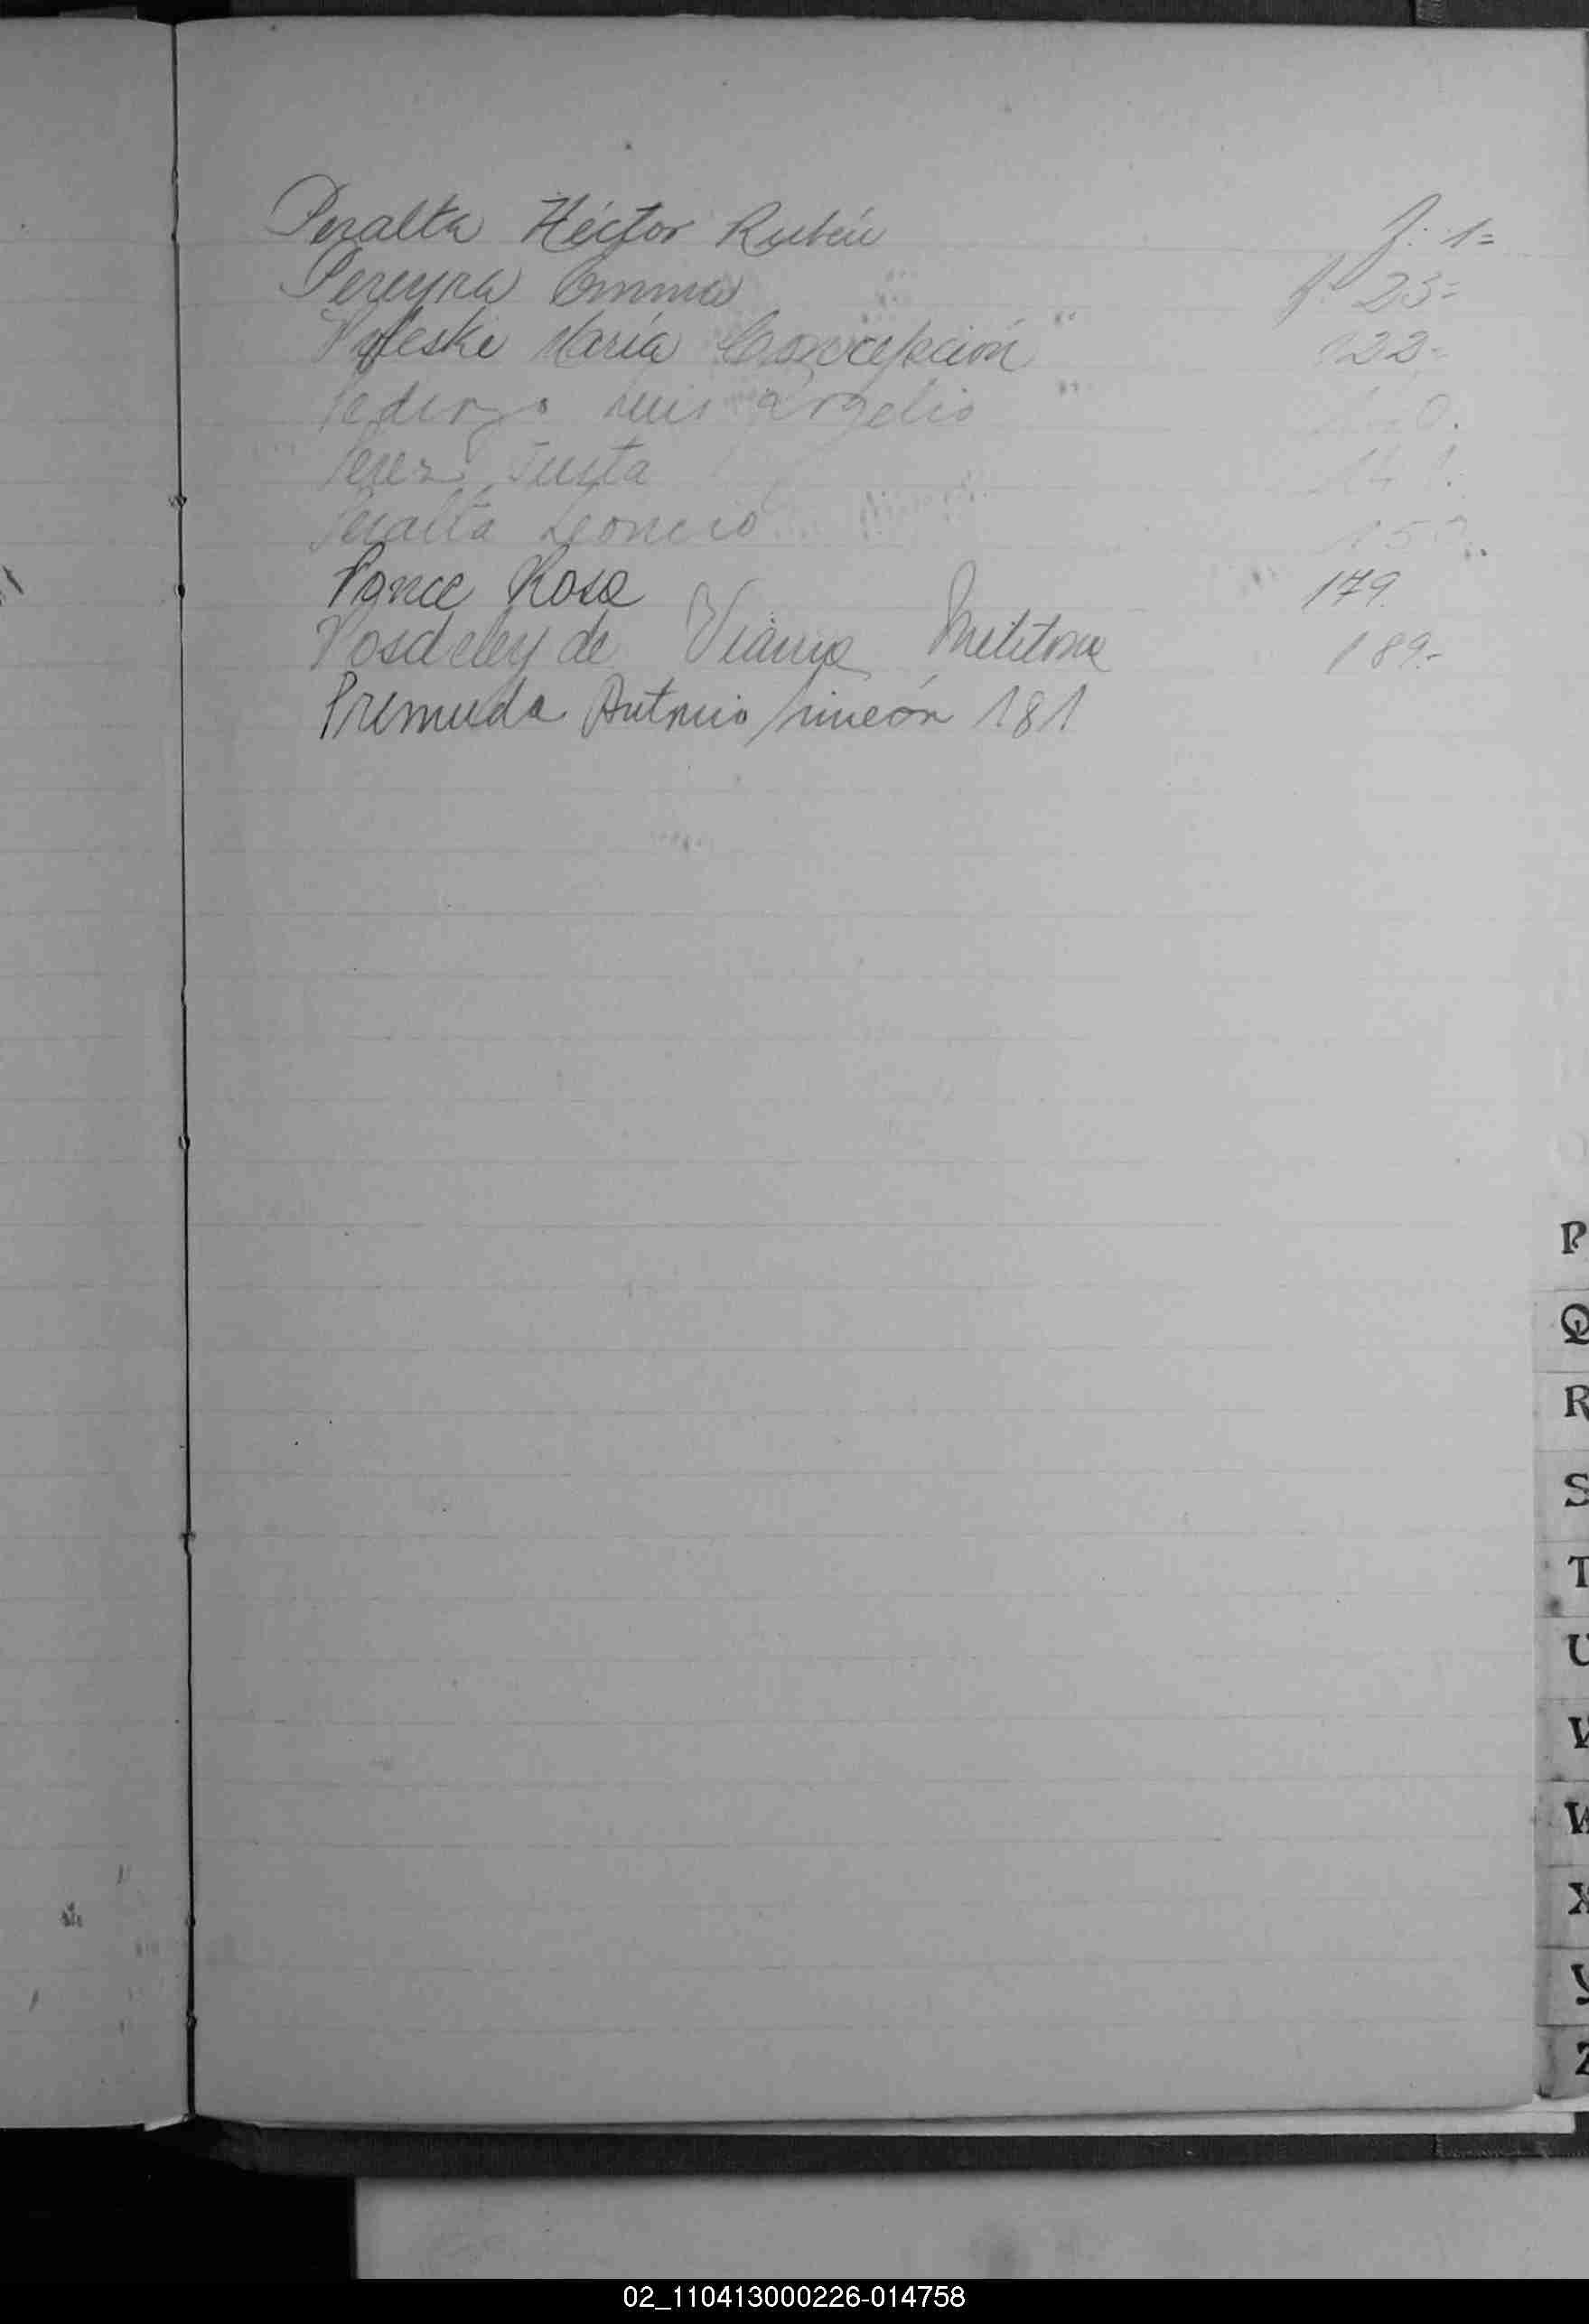 Peralta Héctor Rubén f: 1=
Pereyra Emma f: 23=
María Concepción 122-
Luis Argelio
Perez Justa
Peralta Leoncio
Ponce Rosa 179.
de Viana Melitona 189.-
Premuda Antonio rincón 181
P
Q
R
S
T
U
V
W
X
Y
Z
02_110413000226-014758